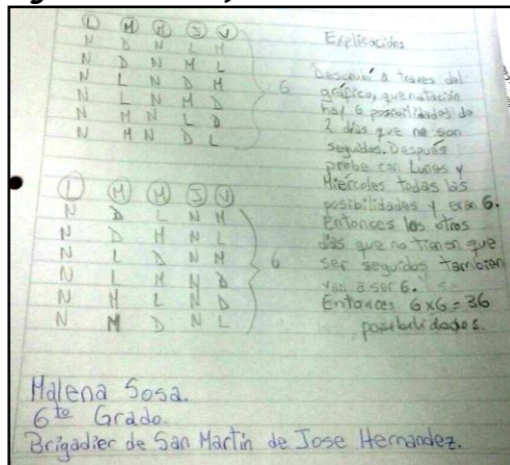 L M M J V
N D N L M
N D N M L
N L N D M
N L N M D
N M N L D
N M N D L
6
L M M J V
N D L N M
N D M N L
N L D N M
N L M N D
N M L N D
N M D N L
6
Explicación:
Descubrí a traves del
gráfico, que natación
hay 6 posibilidades de
2 días que no son
seguidos. Después
probe con Lunes y
Miércoles todas las
posibilidades y eran 6.
Entonces los otros
días que no tienen que
ser seguidos tambien
van a ser 6.
Entonces 6x6=36
posibilidades.
Malena Sosa.
6to Grado.
Brigadier de San Martín de Jose Hernandez.